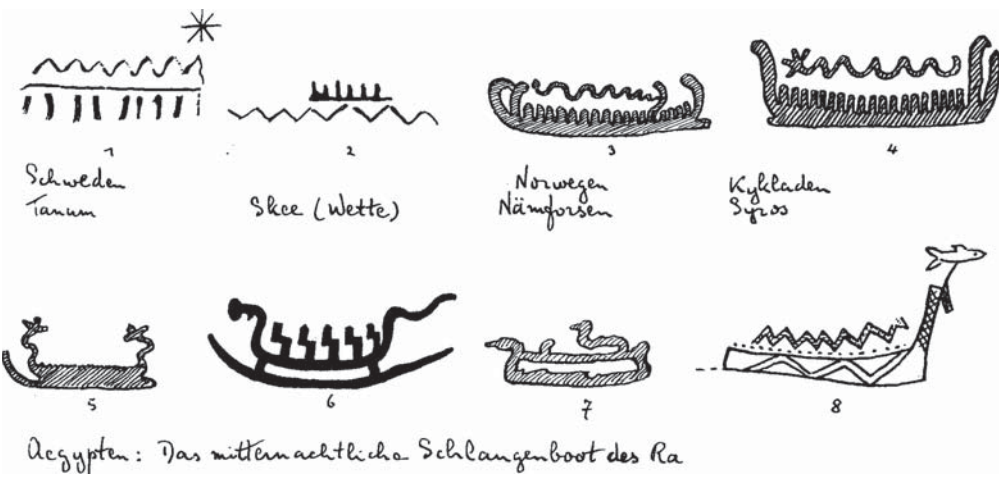 1
2
3
4
Schweden
Tanum
Skee (Wette)
Norwegen
Nämforsen
Kykladen
Syros
5
6
7
8
Aegypten: Das mitternachtliche Schlangenboot des Ra